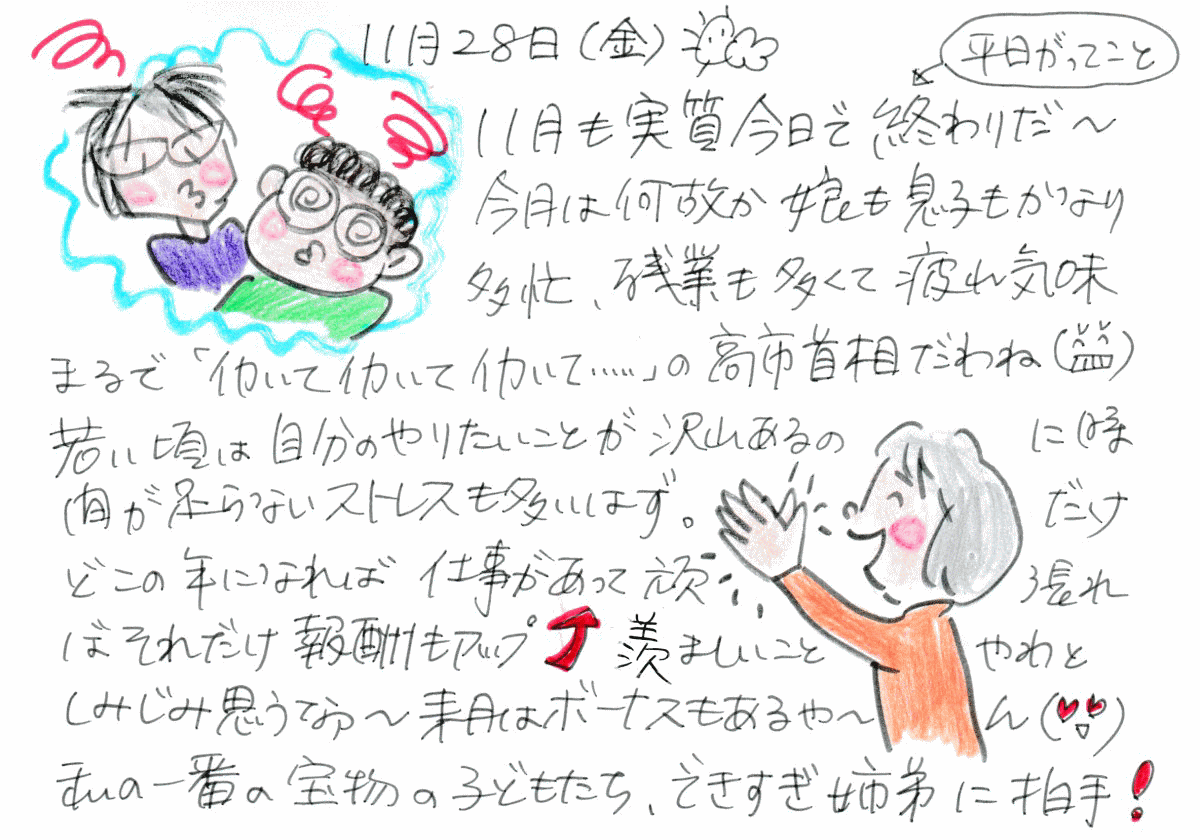 11月28日(金)
平日がってこと
11月も実質今日で終わりだ〜
今月は何故か娘も息子もかなり
多忙、残業も多くて疲れ気味
まるで「働いて働いて働いて……」の高市首相だわね
若い頃は自分のやりたいことが沢山あるのに時
間が足らないストレスも多いはず。だけ
どこの年になれば仕事があって頑張れ
ばそれだけ報酬もアップ 羨ましいことやわと
しみじみ思うなぁ〜来月はボーナスもあるや〜ん
私の一番の宝物の子どもたち、できすぎ姉弟に拍手!